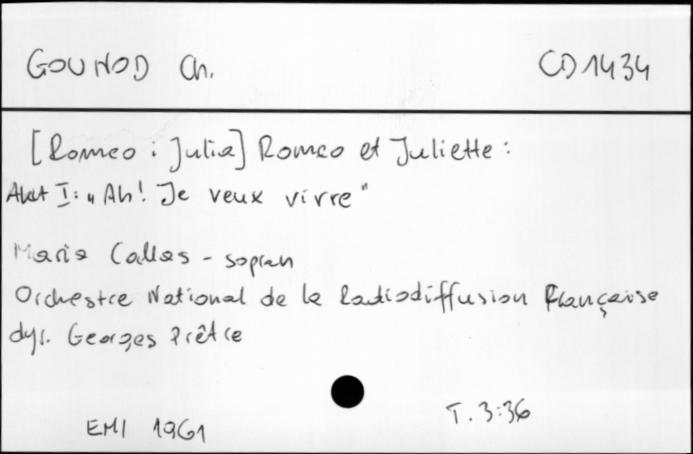 GOUNOD Ch. CD 1434
[Romeo i Julia] Romeo et Juliette:
Akt I: „Ah! Je veux vivre"
Maria Callas - sopran
Orchestre National de la Radiodiffusion Française
dyr. Georges Prêtre
T. 3:36
EMI 1961